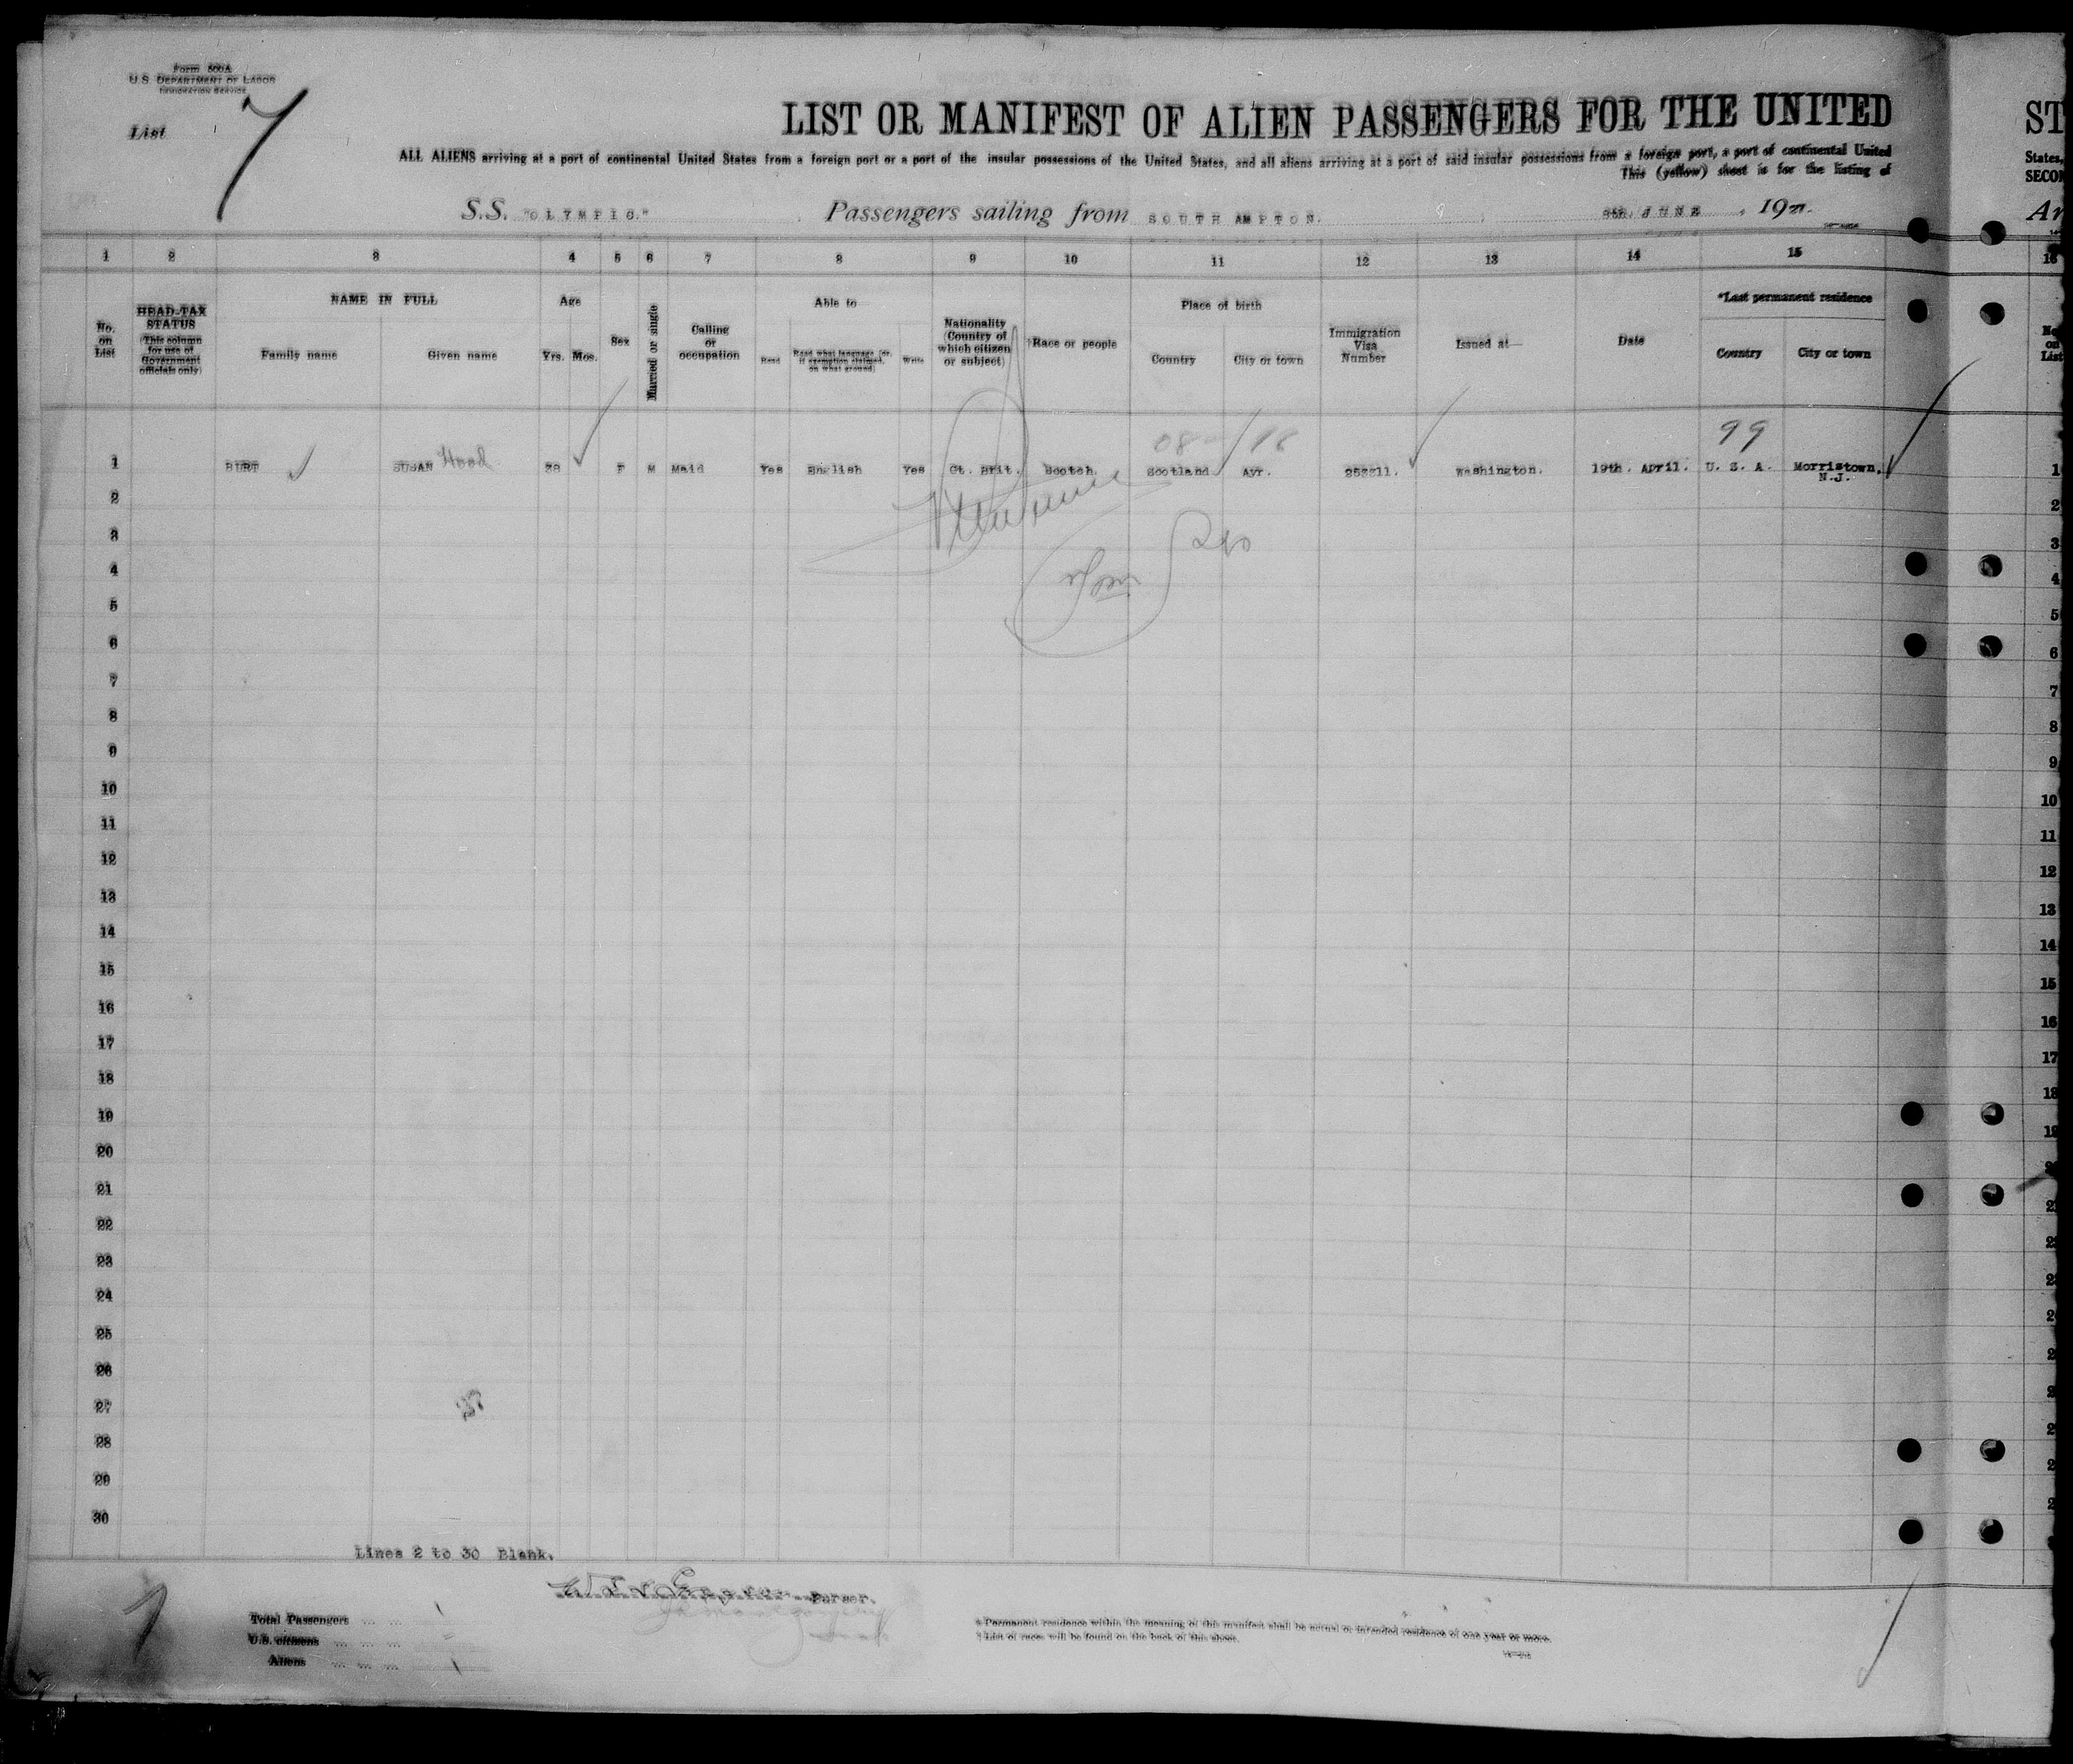 Form 500A
U.S. DEPARTMENT OF LABOR
IMMIGRATION SERVICE
List 7
LIST OR MANIFEST OF ALIEN PASSENGERS FOR THE UNITED
ST
ALL ALIENS arriving at a port of continental United States from a foreign port or a port of the insular possessions of the United States, and all aliens arriving at a port of said insular possessions from a foreign port, a port of continental United
States,
This (yellow) sheet is for the listing of
SECON
S.S. "OLYMPIC." Passengers sailing from SOUTHAMPTON. JUNE, 19
Ar
1 2 3 4 5 6 7 8 9 10 11 12 13 14 15
16
HEAD-TAX STATUS (This column for use of Government officials only)
NAME IN FULL
Age
Able to
Place of birth
*Last permanent residence
No. on List
Family name
Given name
Yrs. Mos.
Sex
Married or single
Calling or occupation
Read
Read what language [or, if exemption claimed, on what ground]
Write
Nationality (Country of which citizen or subject)
†Race or people
Country
City or town
Immigration Visa Number
Issued at
Date
Country
City or town
No. on List
08 99
1 BURT SUSAN Hood F M Maid Yes English Yes Gt. Brit. Scotch Scotland Ayr. Washington. 19th. April. U. S. A. Morristown, N.J. 1
2 2
3 3
4 4
5 5
6 6
7 7
8 8
9 9
10 10
11 11
12 12
13 13
14 14
15 15
16 16
17 17
18 18
19 19
20
21
22
23
24
25
26
27
28
29
30
Lines 2 to 30 Blank.
Purser.
Total Passengers ... ... 1
U.S. citizens ... ... -
Aliens ... ... ... 1
* Permanent residence within the meaning of this manifest shall be actual or intended residence of one year or more.
† List of races will be found on the back of this sheet.